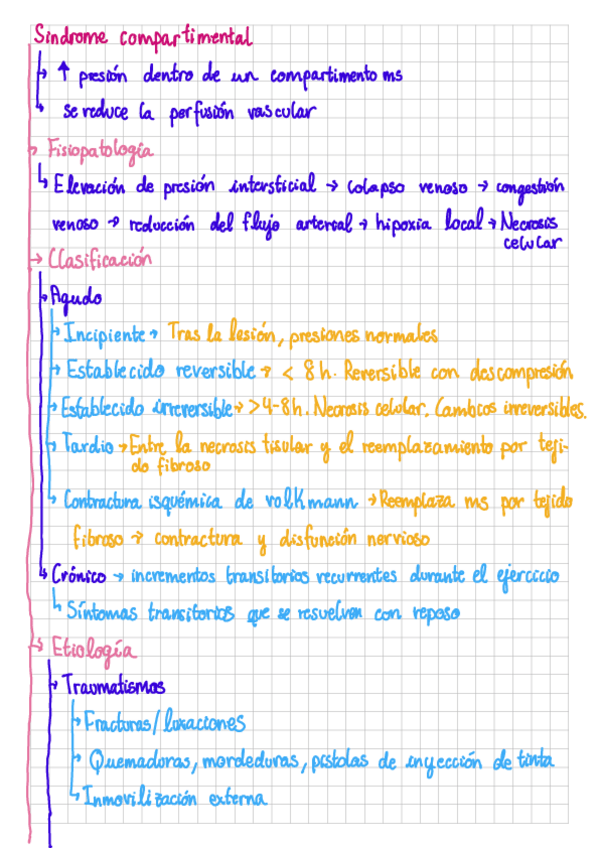 Síndrome compartimental
↳ ↑ presión dentro de un compartimento ms
↳ se reduce la perfusión vascular
→ Fisiopatología
↳ Elevación de presión intersticial → colapso venoso → congestión
venoso → reducción del flujo arterial → hipoxia local → Necrosis
celular
→ Clasificación
→ Agudo
→ Incipiente → Tras la lesión, presiones normales
→ Establecido reversible → < 8h. Reversible con descompresión
→ Establecido irreversible → >4-8h. Necrosis celular. Cambios irreversibles.
→ Tardio → Entre la necrosis tisular y el reemplazamiento por teji-
do fibroso
↳ Contractura isquémica de volkmann → Reemplaza ms por tejido
fibroso → contractura y disfunción nervioso
↳ Crónico → incrementos transitorios recurrentes durante el ejercicio
↳ Síntomas transitorios que se resuelven con reposo
→ Etiología
→ Traumatismos
→ Fracturas/luxaciones
→ Quemaduras, mordeduras, pistolas de inyección de tinta
↳ Inmovilización externa